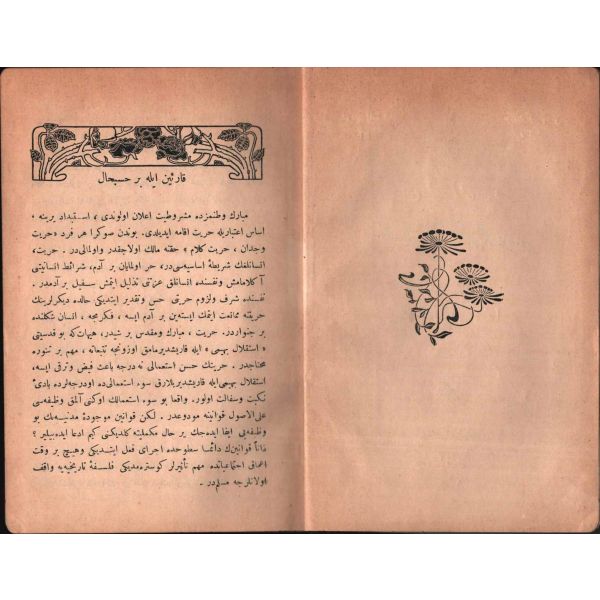 قارئین ایله بر حسبحال
مبارك وطنمزده مشروطیت اعلان اولوندی ، استبداد یرینه ،
اساس اعتباریله حریت اقامه ایدیلدی. بوندن صوکرا هر فرد «حریت
وجدان ، حریت كلام » حقنه مالك اولاجقدر واولمالی‌در . حریت،
انسانلغك شریطهٔ اساسیه‌سی‌در، حر اولمایان بر آدم، شرائط انسانیتی
آ كلامامش ونفسنده انسانلق عزتنی تذلیل ایتمش سفیل بر آدمدر .
نفسنده شرف ولزوم حریتی حس وتقدیر ایتدیكی حالده دیكرلرینك
حریتنه ممانعت ایتمك ایسته‌ین بر آدم ایسه ، فكرمجه ، انسان شكلنده
بر جنواردر. حریت ، مبارك ومقدس بر شیدر، هیهات‌كه بو قدسیتی
« استقلال بهیمی » ایله قاریشدیرمامق اوزونجه تتبعاته ، مهم بر تنوره
محتاجدر . حریتك حسن استعمالی نه‌درجه باعث فیض وترقی ایسه،
استقلال بهیمی ایله قاریشدیریلارق سوء استعمالی ده اودرجه‌لرده بادیٔ
نكبت وسفالت اولور. واقعا بو سوء استعمالك اوكنی آلمق وظیفه‌سی
علی‌الاصول قوانینه مودوعدر . لكن قوانین موجودهٔ مدنیه‌نك بو
وظیفه‌یی ایفا ایده‌جك بر حال مكملیته كلدیكنی كیم ادعا ایده‌بیلیر ؟
ذاتاً قوانینك دائما سطوحده اجرای فعل ایتدیكی وهیچ بر وقت
اعماق اجتماعیاتده مهم تأثیرلر كوستره‌مدیكی فلسفهٔ تاریخیه‌یه واقف
اولانلرجه مسلم‌در .